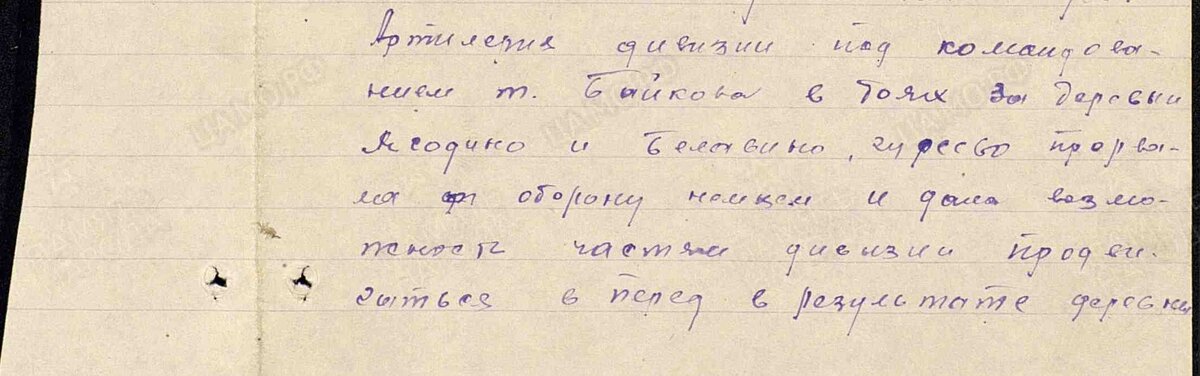 Артилерия дивизии под командова-
нием т. Байкова в боях за деревни
Ягодино и Белавино, прорва-
ла оборону немцем и дала возмо-
жность частям дивизии продви-
гаться в перед в результате деревни